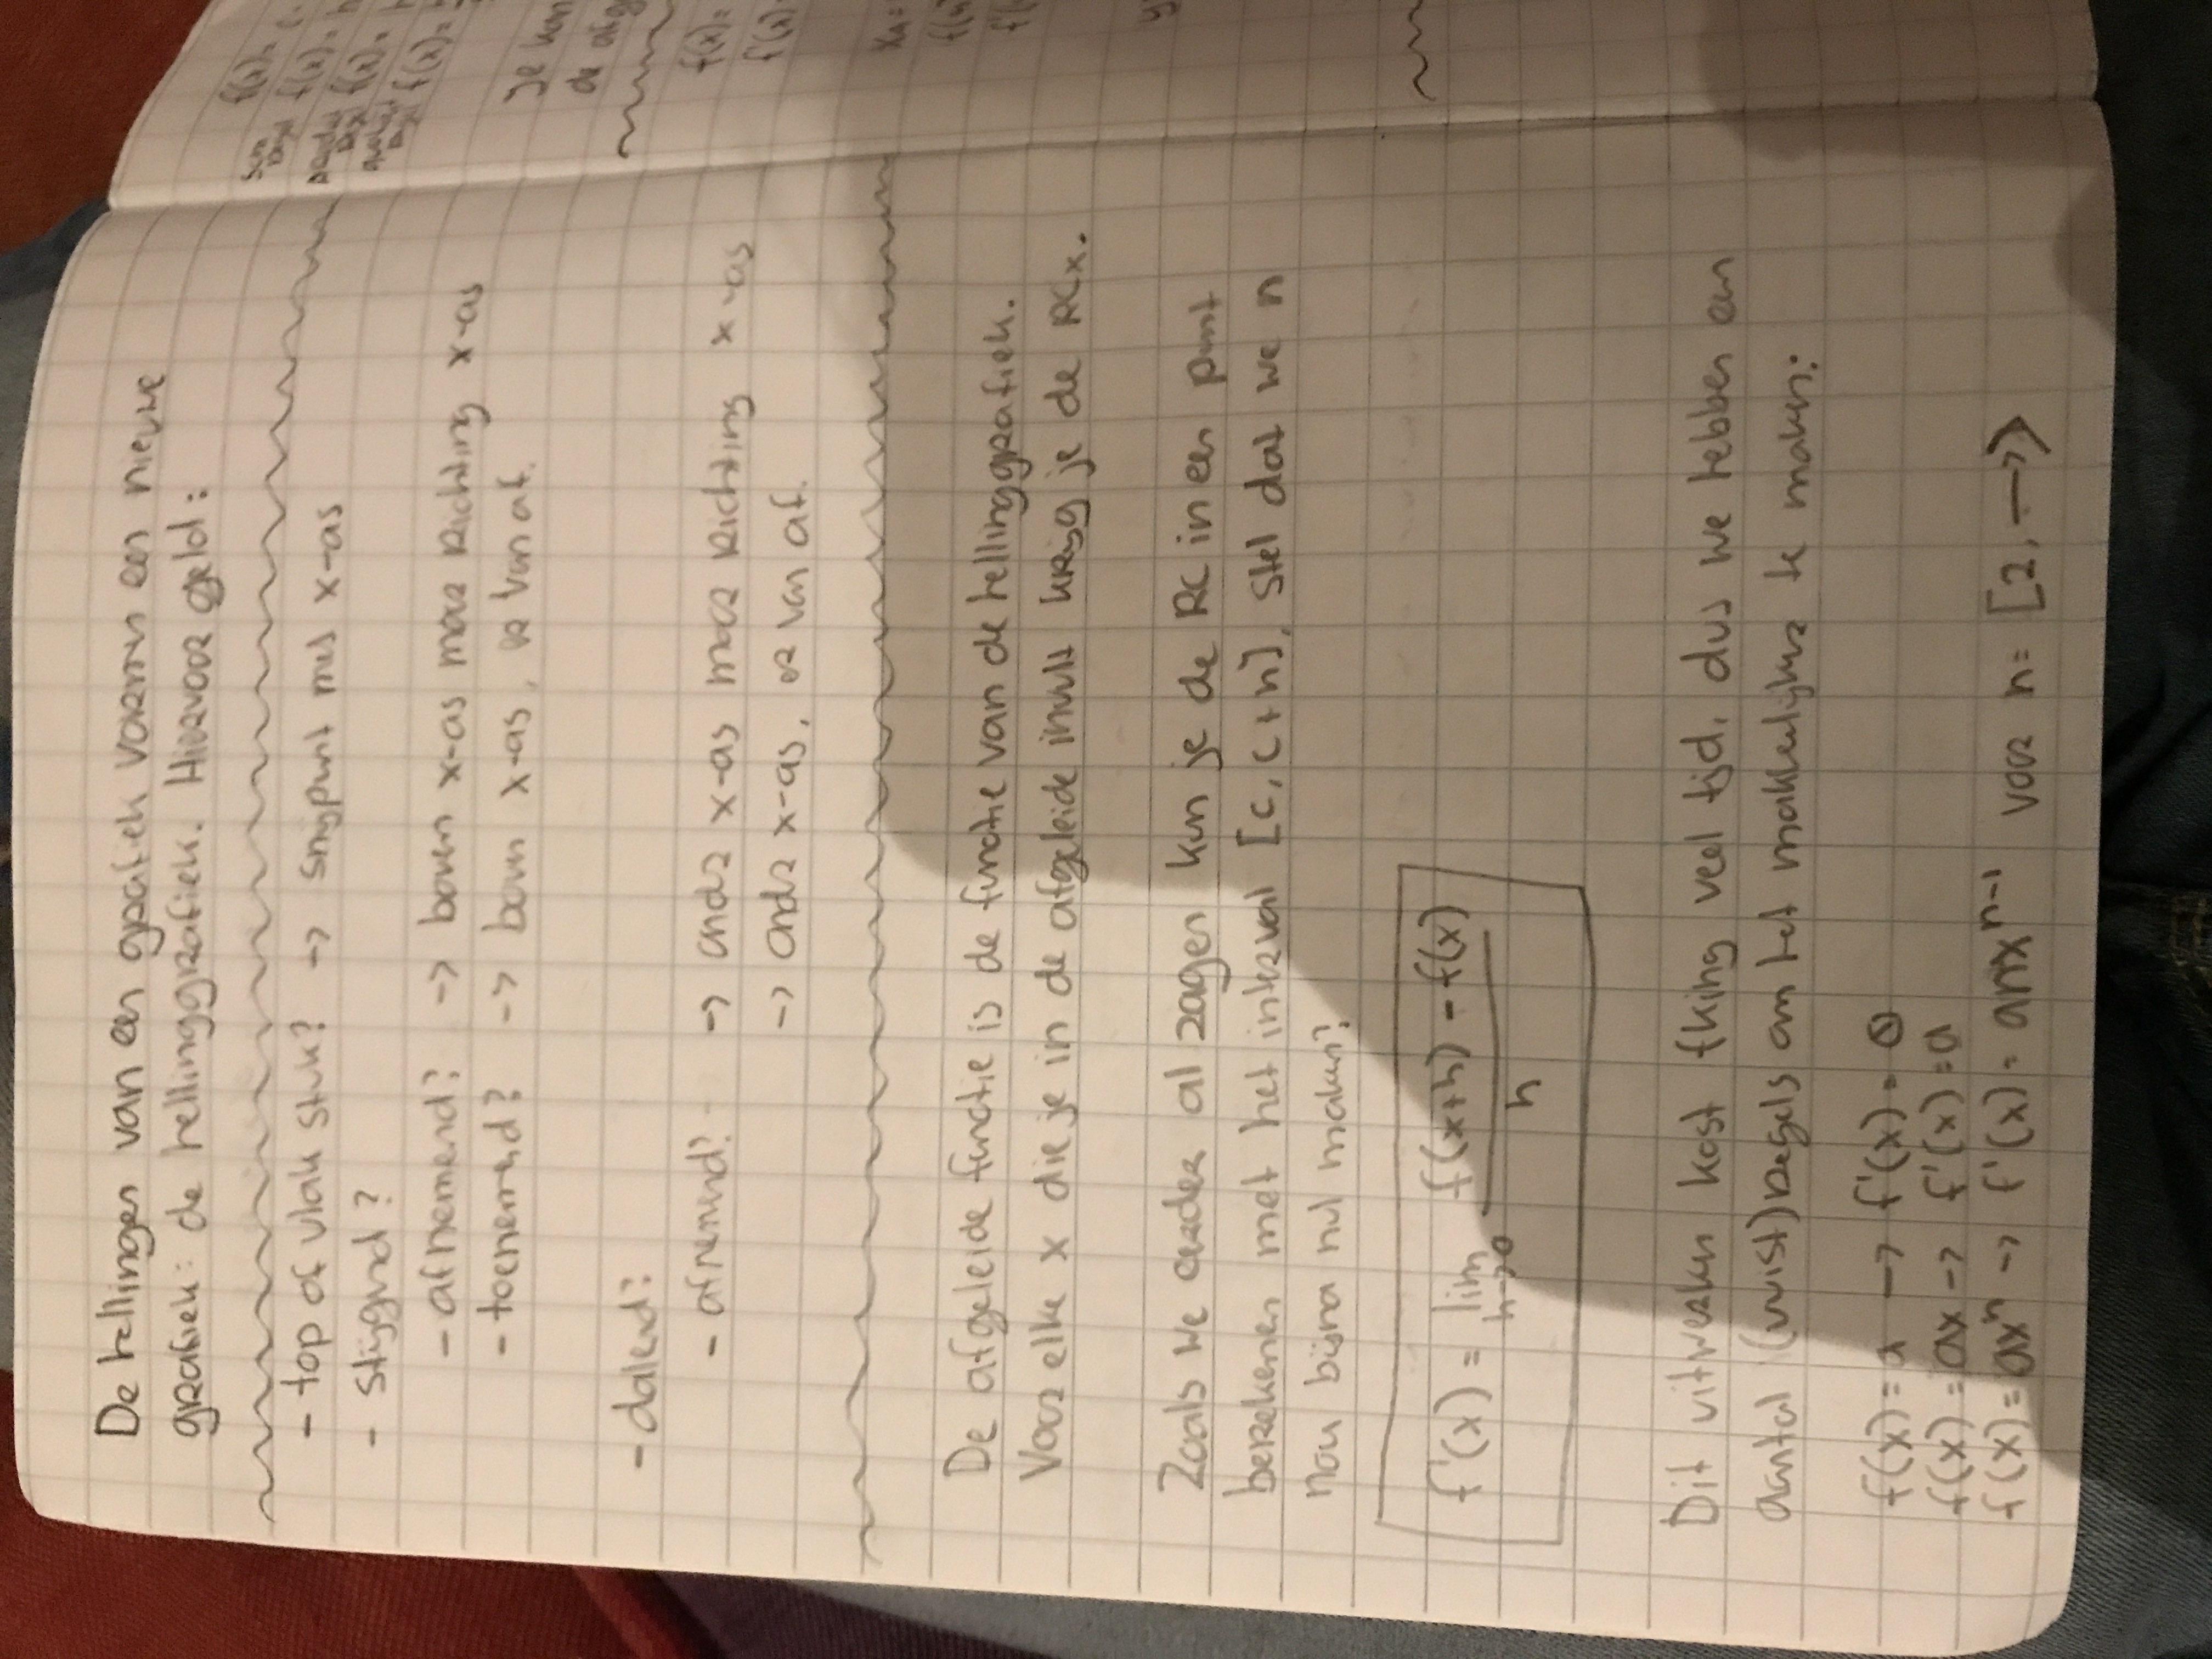 De hellingen van een grafiek vormen een nieuwe
grafiek: de hellinggrafiek. Hiervoor geld:
- top of vlak stuk? -> snijpunt met x-as
- stijgend?
- afnemend? -> boven x-as maar richting x-as
- toenemend? -> boven x-as, er van af.
- dalend?
- afnemend? -> onder x-as maar richting x-as
-> onder x-as, er van af.
De afgeleide functie is de functie van de hellinggrafiek.
Voor elke x die je in de afgeleide invult krijg je de RCx.
Zoals we eerder al zagen kun je de RC in een punt
berekenen met het interval [c, c+h], stel dat we h
nou bijna nul maken?
f'(x) = lim h->0 f(x+h) - f(x) / h
Dit uitwerken kost fking veel tijd, dus we hebben een
aantal (vuist)regels om het makkelijker te maken:
f(x) = a -> f'(x) = 0
f(x) = ax -> f'(x) = a
f(x) = axⁿ -> f'(x) = anxⁿ⁻¹ voor n = [2, ->>
f(x) =
som regel f(x) =
product regel f(x) =
quotient regel f(x) =
Je kan
de afg
f(x) =
f'(x)